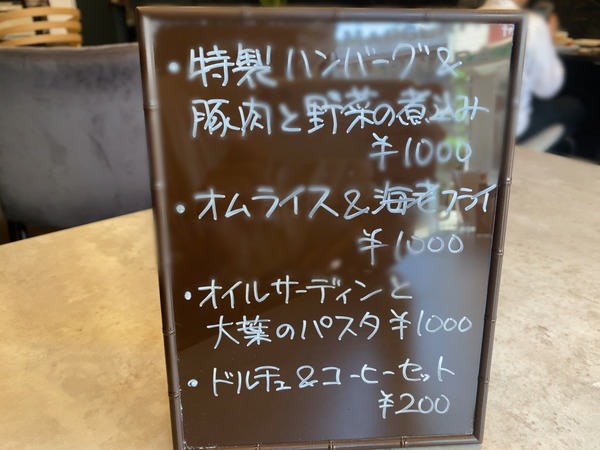 ・特製ハンバーグ&
豚肉と野菜の煮込み
¥1000
・オムライス&海老フライ
¥1000
・オイルサーディンと
大葉のパスタ ¥1000
・ドルチェ&コーヒーセット
¥200